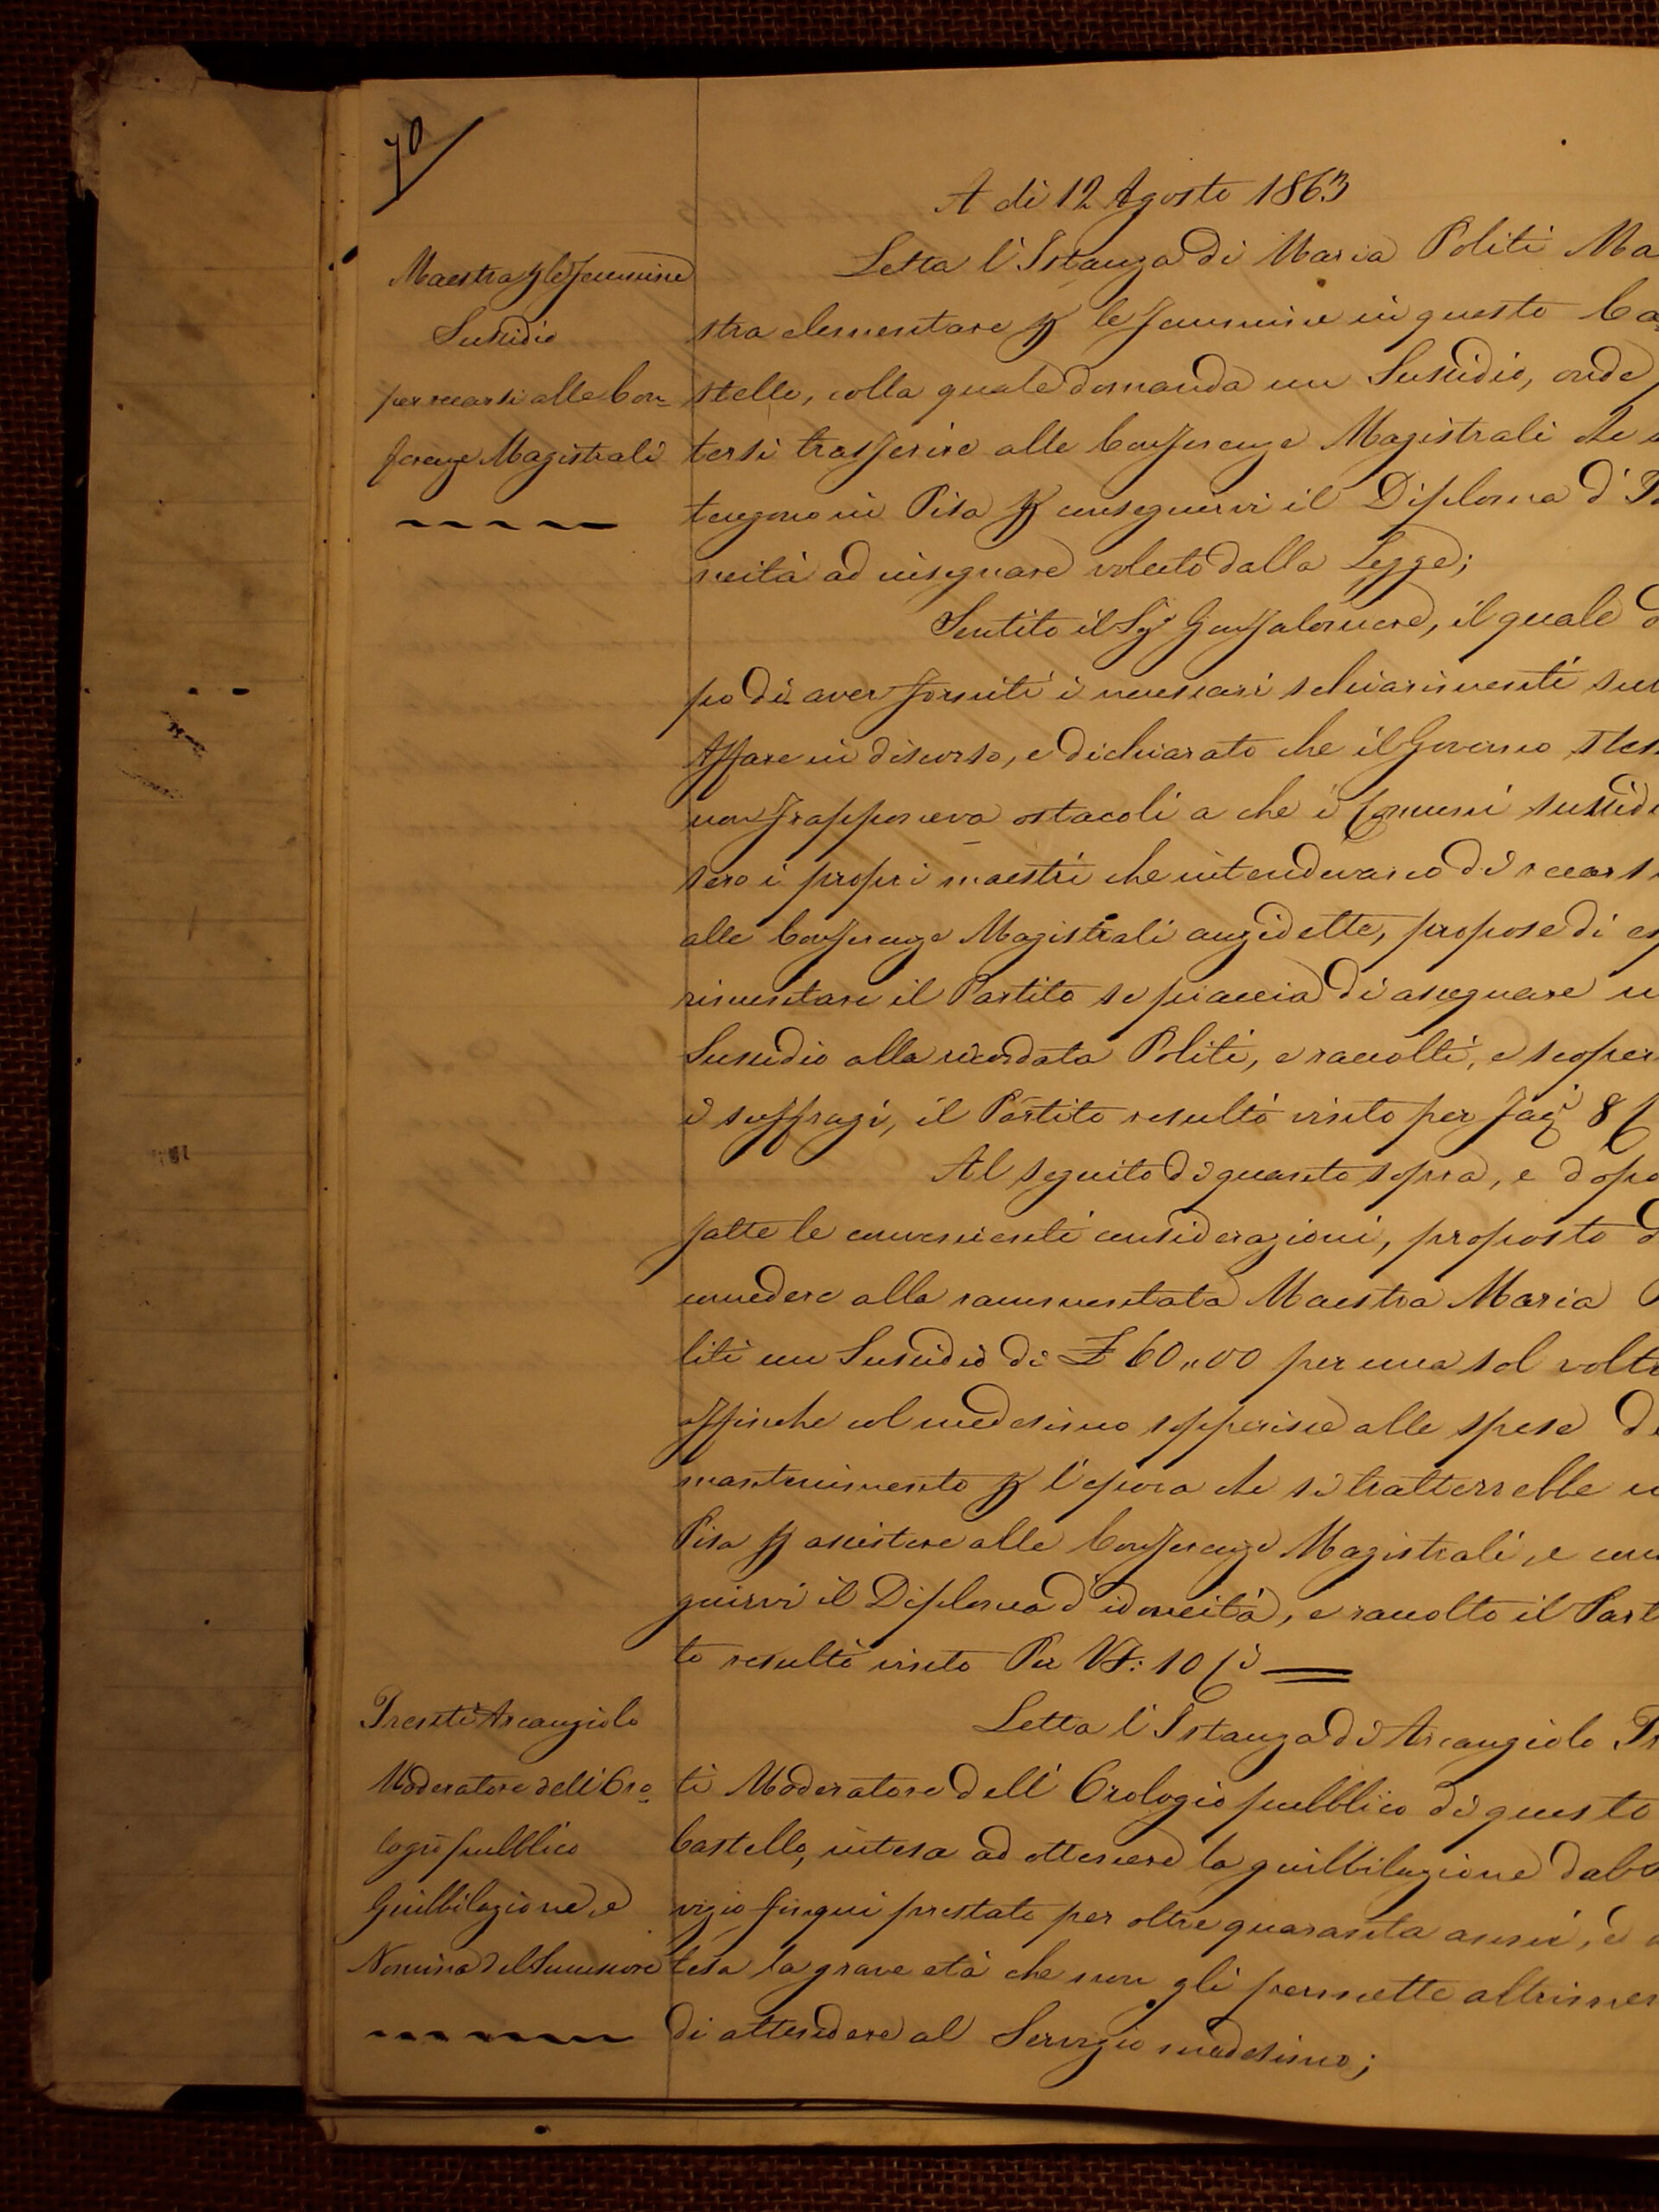 70
A di 12 Agosto 1863
Maestra p le Femmine
Sussidio
per recarsi alle Con=
ferenze Magistrali
Letta l'Istanza di Maria Politi Ma
stra elementare p le femmine in questo Ca=
stello, colla quale domanda un Sussidio, onde p
tersi trasferire alle Conferenze Magistrali che s
tengono in Pisa p conseguirvi il Diploma d'I
neità ad insegnare voluto dalla Legge;
Sentito il Sig.r Gonfaloniere, il quale d
po di aver forniti i necessari schiarimenti sul
Affare in discorso, e dichiarato che il Governo stes
non frapponeva ostacoli a che i Comuni sussidi
sero i propri maestri che intendevano di recars
alle Conferenze Magistrali anzidette, propose di esp
rimentare il Partito se piaccia di assegnare u
Sussidio alla ricordata Politi, e raccolti, e scoper
i suffragi, il Partito resultò vinto per Fag.i 8
Al seguito di quanto sopra, e dopo
fatte le convenienti considerazioni, proposto d
concedere alla rammentata Maestra Maria P
liti un Sussidio di £ 60,,00 per una sol volta
affinche col medesimo sopperisce alle spese di
mantenimento p l'epoca che si tratterrebbe i
Pisa p assistere alle Conferenze Magistrali, e con
guirvi il Diploma d'idoneità, e raccolto il Part
to resultò vinto Per Vf: 10
Trenti Arcangiolo
Moderatore dell'Oro=
logio pubblico
Guibbilazione, e
Nomina del Successore
Letta l'Istanza di Arcangiolo Tr
ti Moderatore dell'Orologio pubblico di questo
Castello, intesa ad ottenere la guibbilazione dal
vizio finqui prestato per oltre quaranta anni, e a
tesa la grave età che non gli permette altrimen
di attendere al Servizio medesimo;